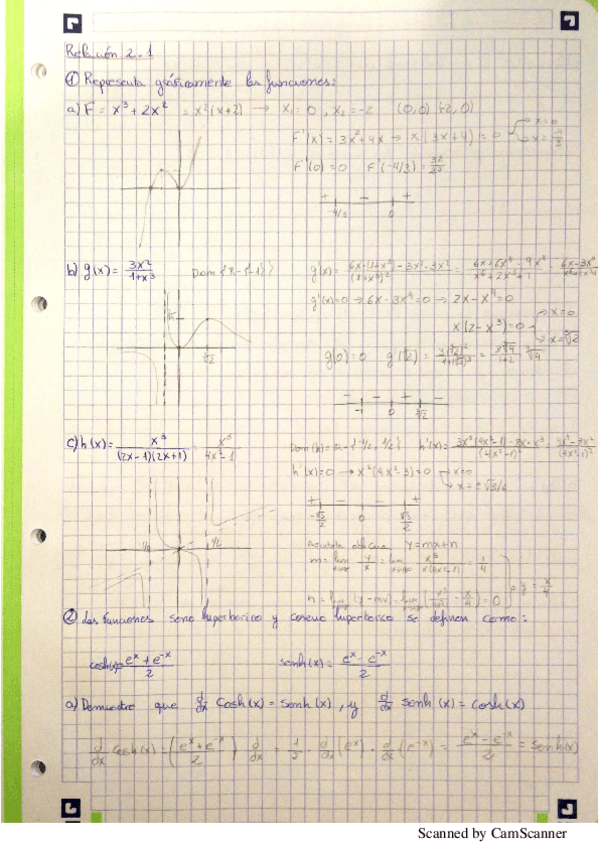 Relación 2.1
① Representa gráficamente las funciones:
a) F = x³ + 2x² = x²(x+2) → x₁ = 0, x₂ = -2 (0,0) (-2,0)
F'(x) = 3x² + 4x → x(3x+4) = 0 → x=0 → x = -4/3
F'(0) = 0 F'(-4/3) = 32/27
+ - +
-4/3 0
b) g(x) = 3x²/(1+x³) Dom {R-{-1}} g'(x) = (6x·(1+x³) - 3x²·3x²)/(1+x³)² = (6x+6x⁴-9x⁴)/(x⁶+2x³+1) =
g'(x)=0 → 6x-3x⁴=0 → 2x-x⁴=0
x(2-x³)=0 → x=0 → x=∛2
g(0)=0
∛2
- - + -
-1 0 ∛2
c) h(x) = x³/((2x-1)(2x+1)) = x³/(4x²-1) Dom(h) = R-{-1/2, 1/2}
h'(x)=0 → x²(4x²-3)=0 → x=0
+ - - +
-√3/2 0 √3/2
1/2
Asíntota oblicua y=mx+n
m = lim y/x = lim x³/(x(4x²-1)) = 1/4
n = lim (y-mx) = lim (x³/(4x²-1) - x/4) = 0 y = x/4
② Las funciones seno hiperbólico y coseno hiperbólico se definen como:
cosh(x) = (eˣ + e⁻ˣ)/2 senh(x) = (eˣ - e⁻ˣ)/2
a) Demuestre que d/dx cosh(x) = senh(x), y d/dx senh(x) = cosh(x)
d/dx cosh(x) = ((eˣ+e⁻ˣ)/2) d/dx = 1/2 · d/dx (eˣ) · d/dx (e⁻ˣ) = (eˣ - e⁻ˣ)/2 = senh(x)
Scanned by CamScanner